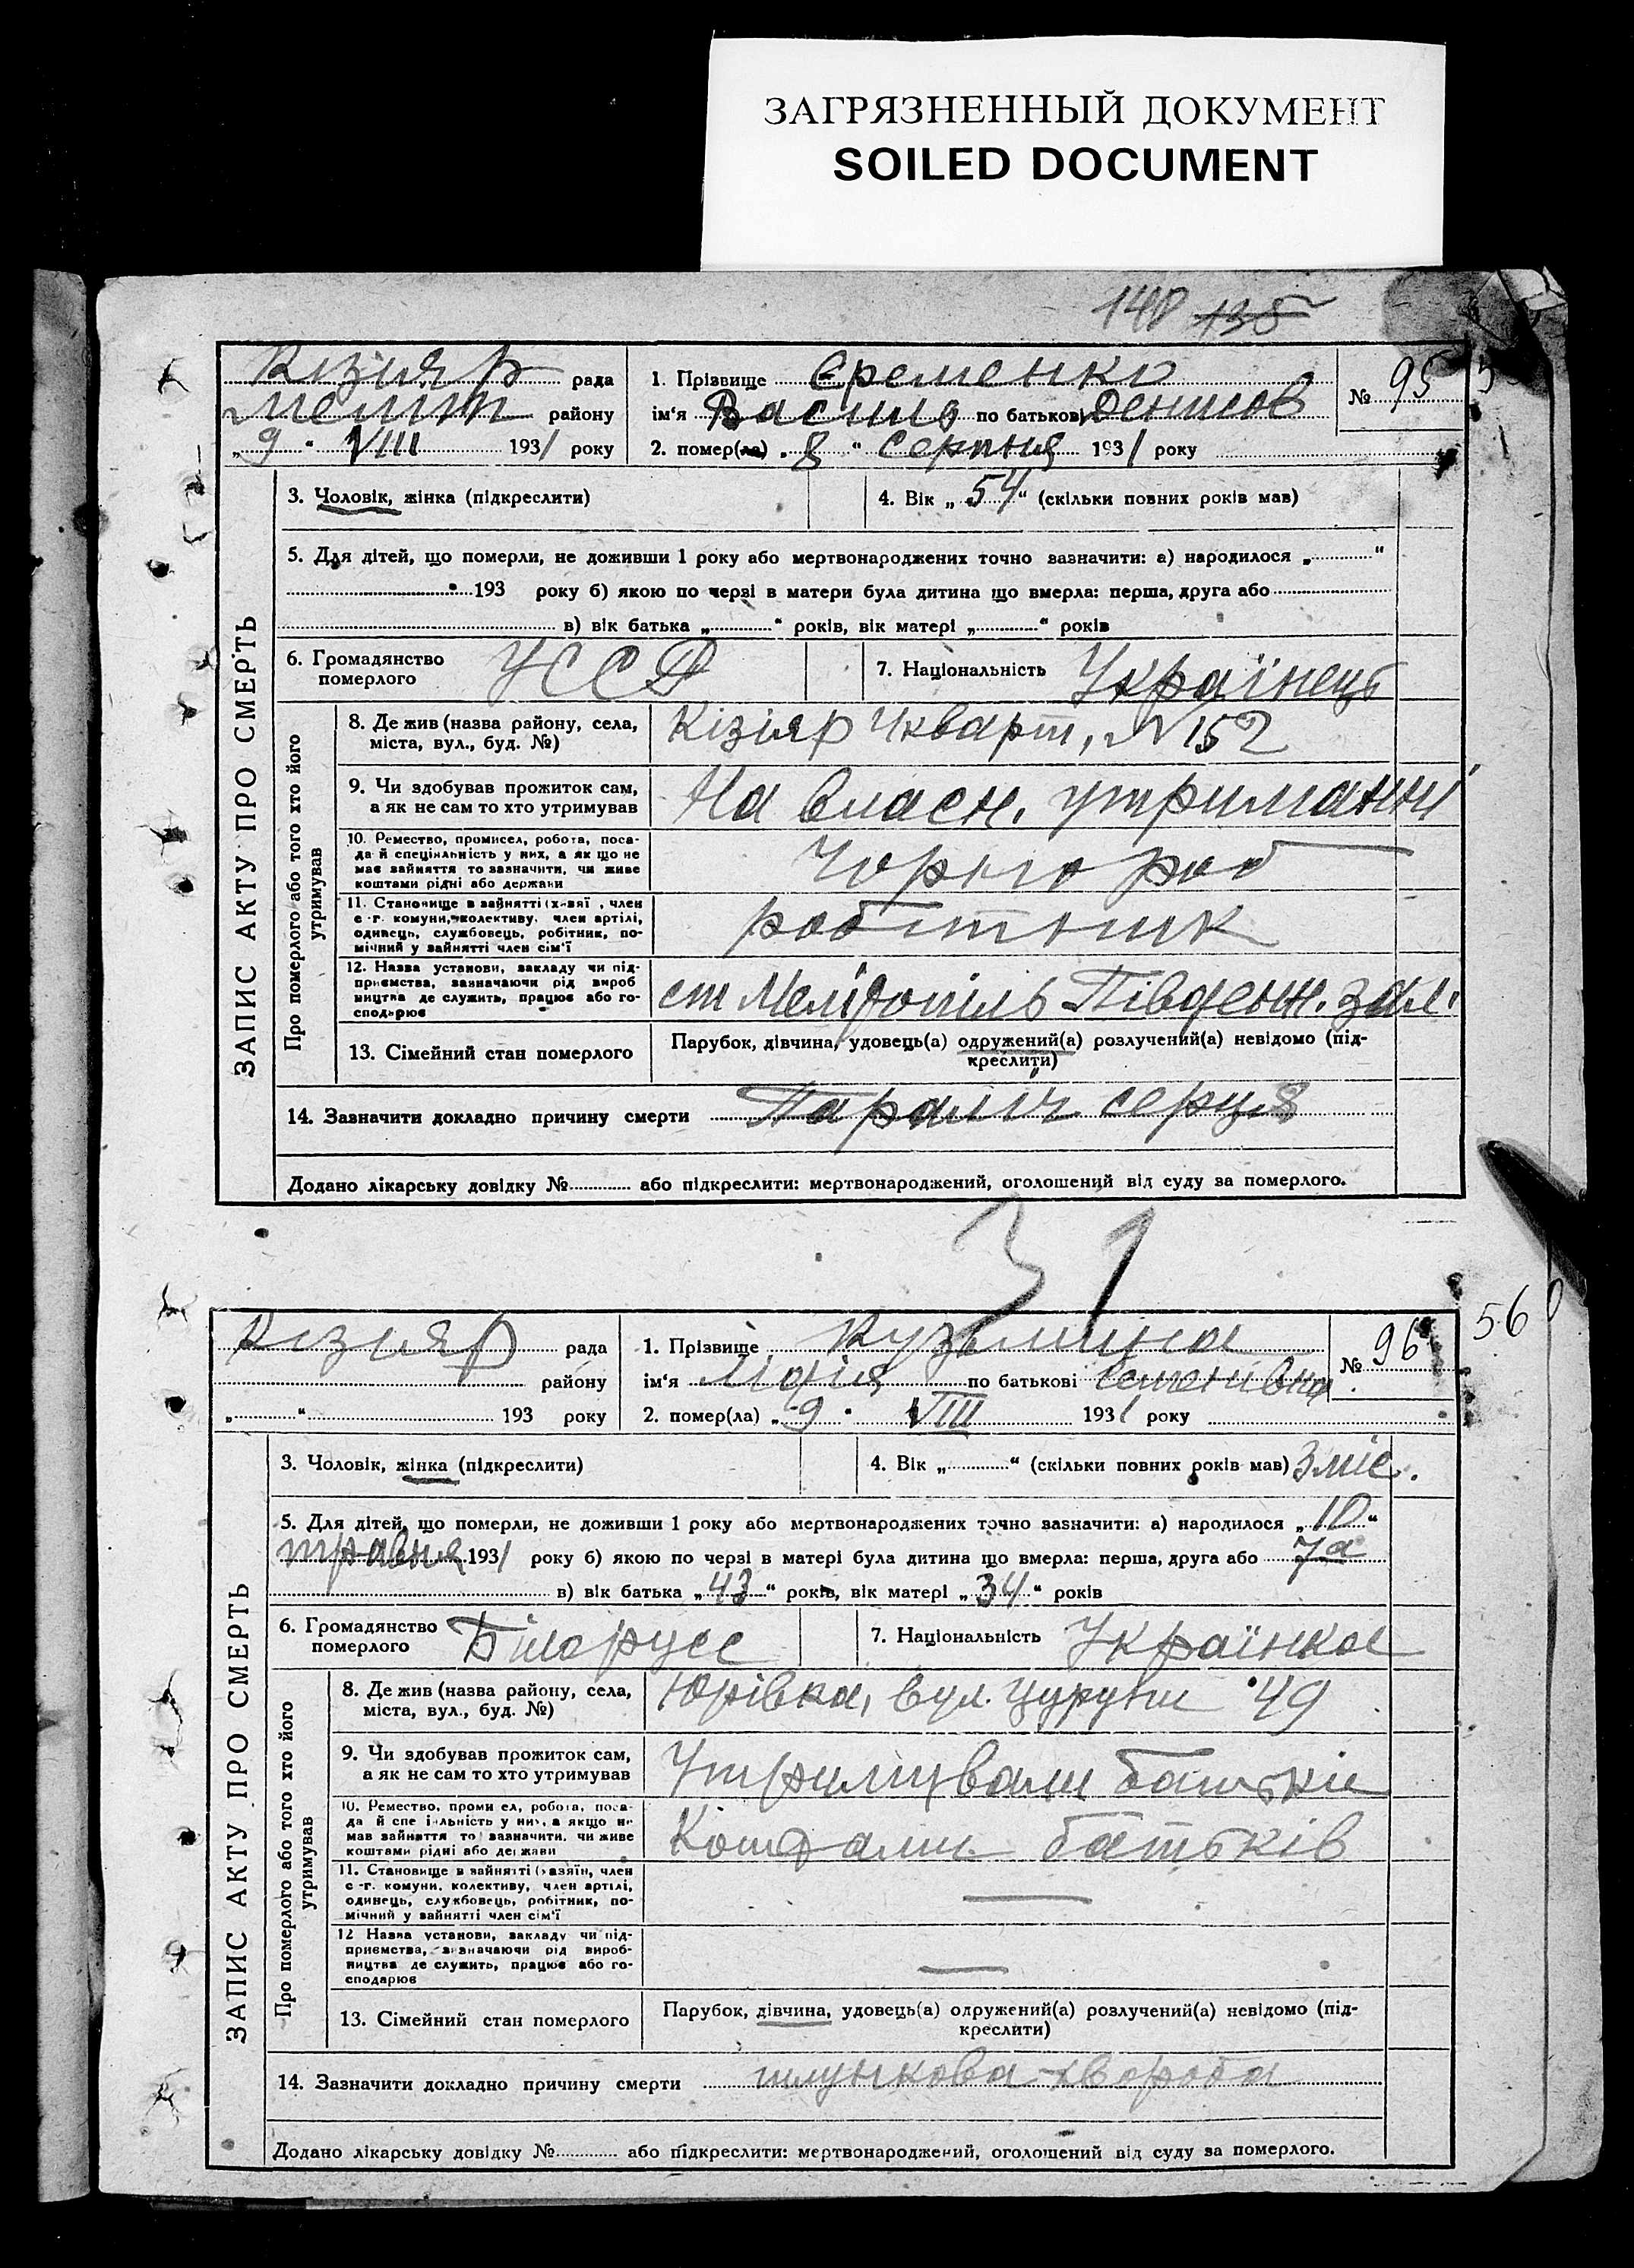 ЗАГРЯЗНЕННЫЙ ДОКУМЕНТ
SOILED DOCUMENT
140 135
Кізіяр рада
Меліт району
„9“ VIII 1931 року
1. Прізвище Єременко
ім‘я Василь по батькові Денисов
2. помер(ла) „8“ Серпня 1931 року
№ 95
ЗАПИС АКТУ ПРО СМЕРТЬ
3. Чоловік, жінка (підкреслити)
4. Вік „54“ (скільки повних років мав)
5. Для дітей, що померли, не доживши 1 року або мертвонароджених точно зазначити: а) народилося „ “
193 року б) якою по черзі в матери була дитина що вмерла: перша, друга або
в) вік батька „ “ років, вік матері „ “ років
6. Громадянство
померлого
УССР
7. Національність Українець
Про померлого або того хто його
утримував
8. Де жив (назва району, села,
міста, вул., буд. №)
Кізіяр 4 кварт, № 152
9. Чи здобував прожиток сам,
а як не сам то хто утримував
На власн. утриманні
10. Ремество, промисел, робота, поса-
да й спеціяльність у них, а як що не
має зайняття то зазначити, чи живе
коштами рідні або держави
Чорно роб
11. Становище в зайнятті (х-зяї , член
с.-г. комуни, колективу, член артілі,
одинець, службовець, робітник, по-
мічний у зайнятті член сім‘ї
робітник
12. Назва установи, закладу чи під-
приємства, зазначаючи рід вироб
ництва де служить, працює або го-
сподарює
ст Мелітопіль Південн. зал.
13. Сімейний стан померлого
Парубок, дівчина, удовець(а) одружений(а) розлучений(а) невідомо (під-
креслити)
14. Зазначити докладно причину смерти Параліч серця
Додано лікарську довідку № або підкреслити: мертвонароджений, оголошений від суду за померлого.
31
Кізіяр рада
району
„ “ 193 року
1. Прізвище Кузьмина
ім‘я Марія по батькові Семенівна
2. помер(ла) „9“ VIII 1931 року
№ 96
56
ЗАПИС АКТУ ПРО СМЕРТЬ
3. Чоловік, жінка (підкреслити)
4. Вік „ “ (скільки повних років мав) 3 міс.
5. Для дітей, що померли, не доживши 1 року або мертвонароджених точно зазначити: а) народилося „10“
травня 1931 року б) якою по черзі в матері була дитина що вмерла: перша, друга або 7а
в) вік батька „43“ років, вік матері „34“ років
6. Громадянство
померлого
Білорусс
7. Національність Українка
Про померлого або того хто його
утримував
8. Де жив (назва району, села,
міста, вул., буд. №)
Юрівка, вул. 49
9. Чи здобував прожиток сам,
а як не сам то хто утримував
Утримували батьки
10. Ремество, проми ел, робота, поса-
да й спе і-льність у них, а якщо не
мав зайняття то зазначити, чи живе
коштами рідні або держави
Коштами батьків
11. Становище в зайнятті (хазяїн, член
с.-г. комуни, колективу, член артілі,
одинець, службовець, робітник, по-
мічний у зайнятті член сім‘ї
—
12 Назва установи, закладу чи під-
приємства, зазначаючи рід вироб-
ництва де служить, працює або го-
сподарює
—
13. Сімейний стан померлого
Парубок, дівчина, удовець(а) одружений(а) розлучений(а) невідомо (під-
креслити)
14. Зазначити докладно причину смерти шлункова хвороба
Додано лікарську довідку № або підкреслити: мертвонароджений, оголошений від суду за померлого.